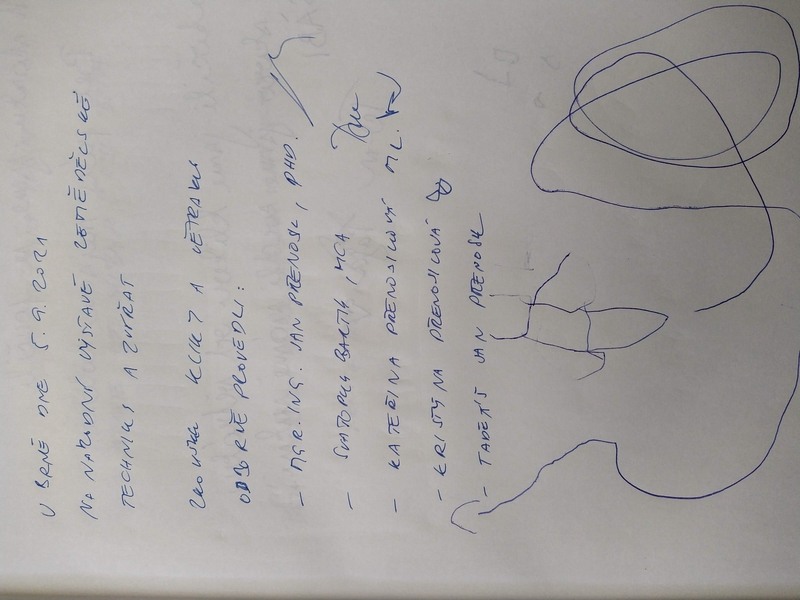 V BRNĚ DNE 5.9.2021
NA NÁRODNÍ VÝSTAVĚ ZEMĚDĚLSKÉ
TECHNIKY A ZVÍŘAT
ZKOUŠKU KLIKY A VĚTRÁKU
ODBORNĚ PROVEDLI:
- MGR. ING. JAN PŘENOSIL, PHD.
- SVATOPLUK BARTÍK, MCA
- KATEŘINA PŘENOSILOVÁ ML.
- KRISTÝNA PŘENOSILOVÁ
- TADEÁŠ JAN PŘENOSIL